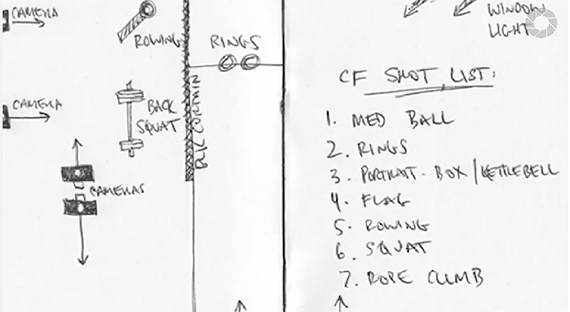 CAMERA
ROWING
RINGS
CAMERA
BACK
SQUAT
BLK CURTAIN
CAMERAS
WINDOW
LIGHT
CF SHOT LIST:
1. MED BALL
2. RINGS
3. PORTRAIT - BOX/KETTLEBELL
4. FLAG
5. ROWING
6. SQUAT
7. ROPE CLIMB